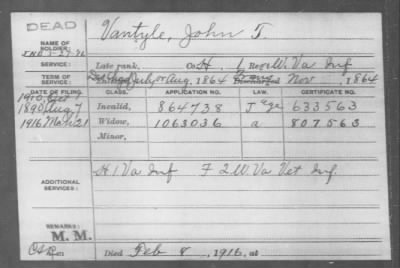 DEAD
NAME OF SOLDIER: Vantyle, John T.
SERVICE: Late rank, Co. H. 1 Reg't W. Va Inf
TERM OF SERVICE: July or Aug, 1864 Nov, 1864
DATE OF FILING. CLASS. APPLICATION NO. LAW. CERTIFICATE NO.
1890 Aug 7 Invalid, 864738 J 633563
1916 Mch 21 Widow, 1063036 a. 807563
Minor,
ADDITIONAL SERVICES: H 1 Va Inf F 2 W. Va Vet Inf.
REMARKS:
M. M.
Died Feb 8, 1916, at